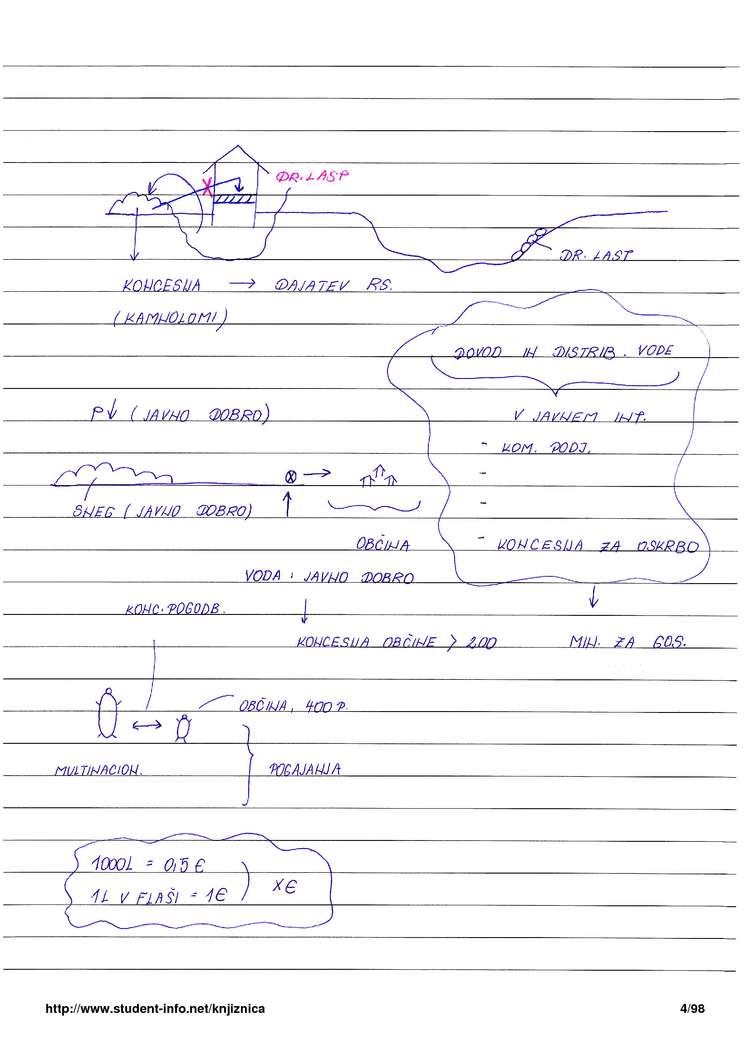 DR. LAST
DR. LAST
KONCESIJA → DAJATEV RS.
(KAMNOLOMI)
DOVOD IN DISTRIB. VODE
P↓ (JAVNO DOBRO)
V JAVNEM INT.
- KOM. PODJ.
-
SNEG (JAVNO DOBRO)
-
OBČINA
- KONCESIJA ZA OSKRBO
VODA : JAVNO DOBRO
KONC. POGODB.
KONCESIJA OBČINE > 200
MIN. ZA GOS.
OBČINA, 400 P.
MULTINACION.
POGAJANJA
1000L = 0,5 €
1L V FLAŠI = 1€
X€
http://www.student-info.net/knjiznica
4/98